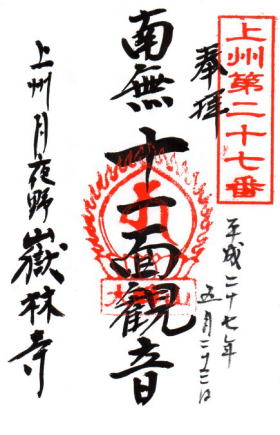 上州第二十七番
奉拝
平成二十七年
五月二十二日
南無十一面観音
上州月夜野嶽林寺